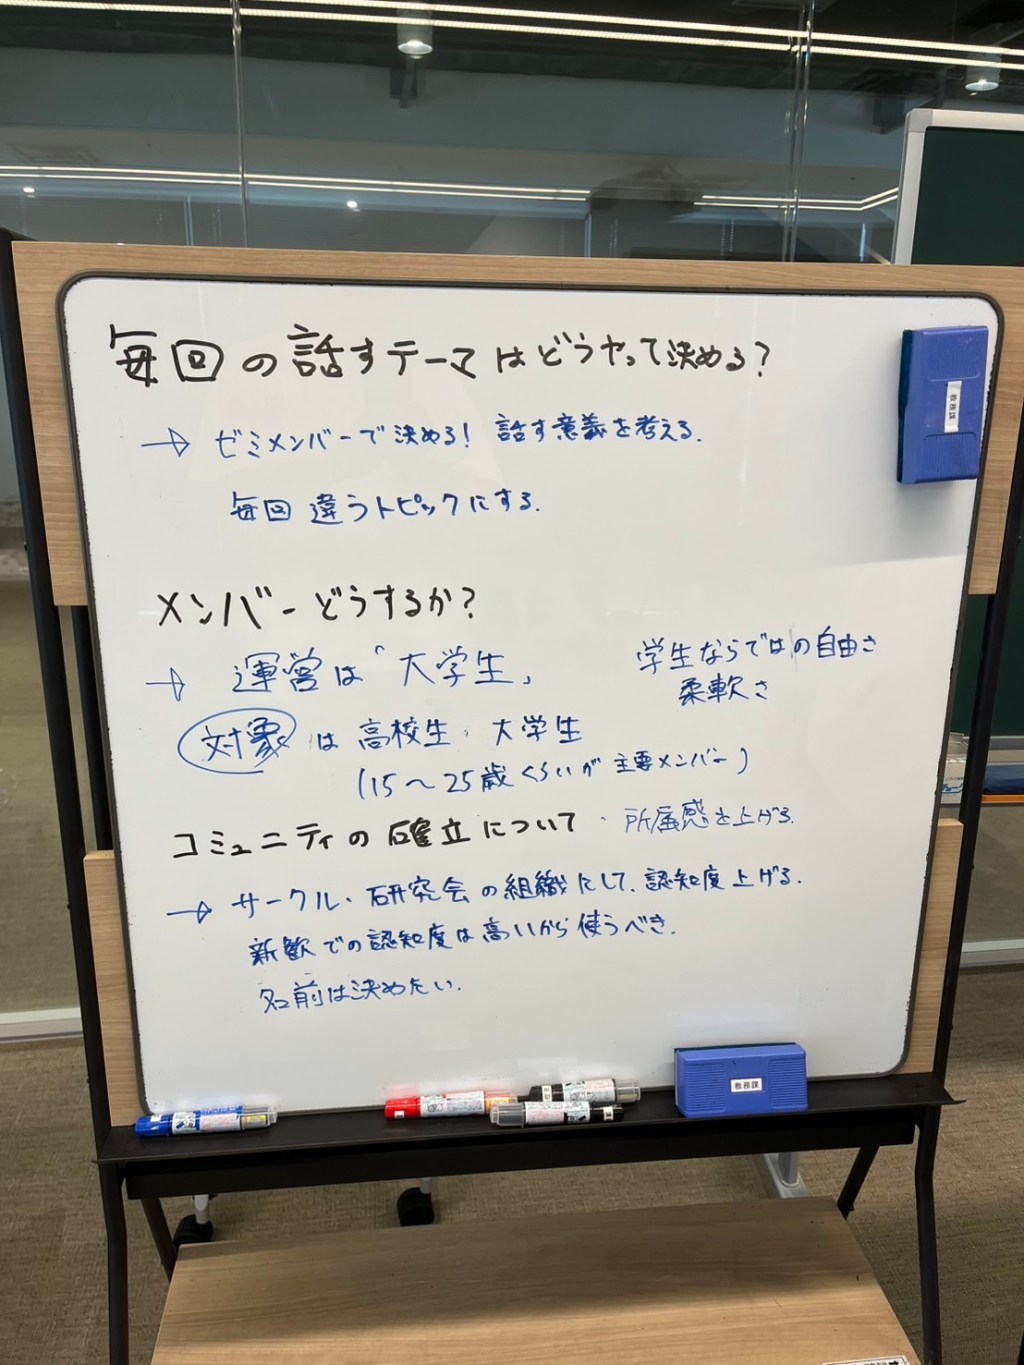 毎回の話すテーマはどうやって決める？
→ ゼミメンバーで決める! 話す意義を考える.
毎回 違うトピックにする.
メンバーどうするか？
→ 運営は「大学生」
学生ならではの自由さ
柔軟さ
対象は高校生、大学生
(15〜25歳くらいが主要メンバー)
コミュニティの確立について ・所属感を上げる.
→ サークル・研究会の組織にして、認知度上げる.
新歓での認知度は高いから使うべき.
名前は決めたい.
教務課
教務課